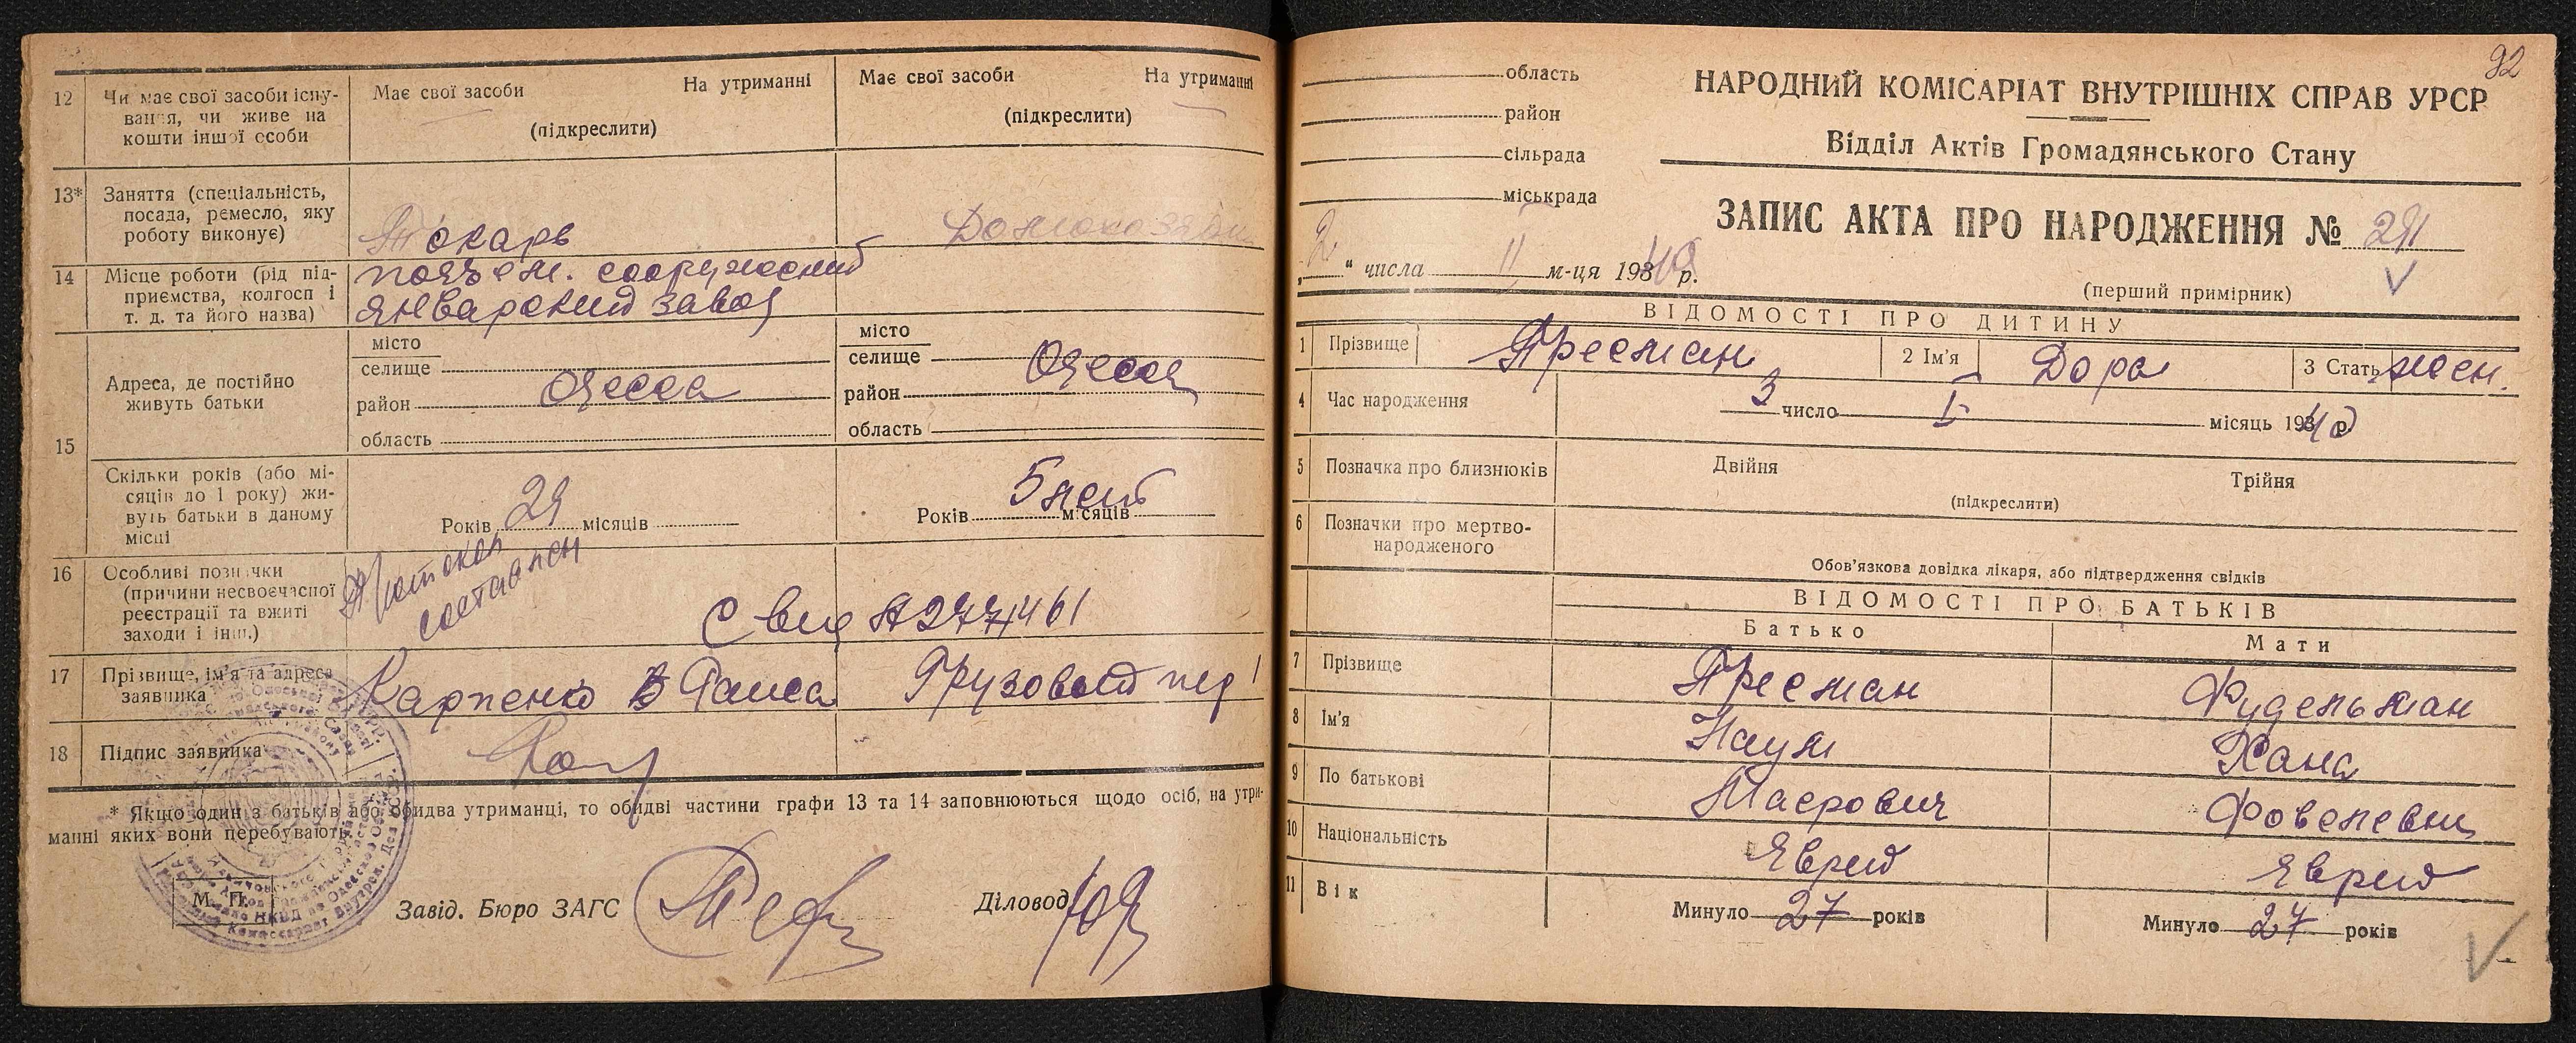 12 Чи має свої засоби існу-
вання, чи живе на
кошти іншої особи
Має свої засоби На утриманні
(підкреслити)
Має свої засоби На утриманні
(підкреслити)
13* Заняття (спеціальність,
посада, ремесло, яку
роботу виконує)
Токарь
14 Місце роботи (рід під-
приємства, колгосп і
т. д. та його назва)
подъем. сооружений
январский завод
15 Адреса, де постійно
живуть батьки
місто
селище
район Одесса
область
місто
селище Одесса
район
область
Скільки років (або мі-
сяців до 1 року) жи-
вуть батьки в даному
місці
Років 29 місяців
Років 5 лет місяців
16 Особливі позначки
(причини несвоєчасної
реєстрації та вжиті
заходи і інш.)
Протокол
составлен
Свид А277461
17 Прізвище, ім'я та адреса
заявника
Карпенко Таиса Грузовой пер 1
18 Підпис заявника
* Якщо один з батьків або обидва утриманці, то обидві частини графи 13 та 14 заповнюються щодо осіб, на утри-
манні яких вони перебувають.
М. П. Завід. Бюро ЗАГС Діловод
92
область
район
сільрада
міськрада
НАРОДНИЙ КОМІСАРІАТ ВНУТРІШНІХ СПРАВ УРСР
Відділ Актів Громадянського Стану
ЗАПИС АКТА ПРО НАРОДЖЕННЯ № 291
2 " числа II м-ця 1940 р.
(перший примірник)
ВІДОМОСТІ ПРО ДИТИНУ
1 Прізвище Пресман 2 Ім'я Дора 3 Стать жен.
4 Час народження 3 число I місяць 1940 р.
5 Позначка про близнюків Двійня Трійня
(підкреслити)
6 Позначки про мертво-
народженого
Обов'язкова довідка лікаря, або підтвердження свідків
ВІДОМОСТІ ПРО БАТЬКІВ
Батько Мати
7 Прізвище Пресман Фудельман
8 Ім'я Наум Хана
9 По батькові Маерович
10 Національність Еврей Еврей
11 Вік Минуло 27 років Минуло 27 років